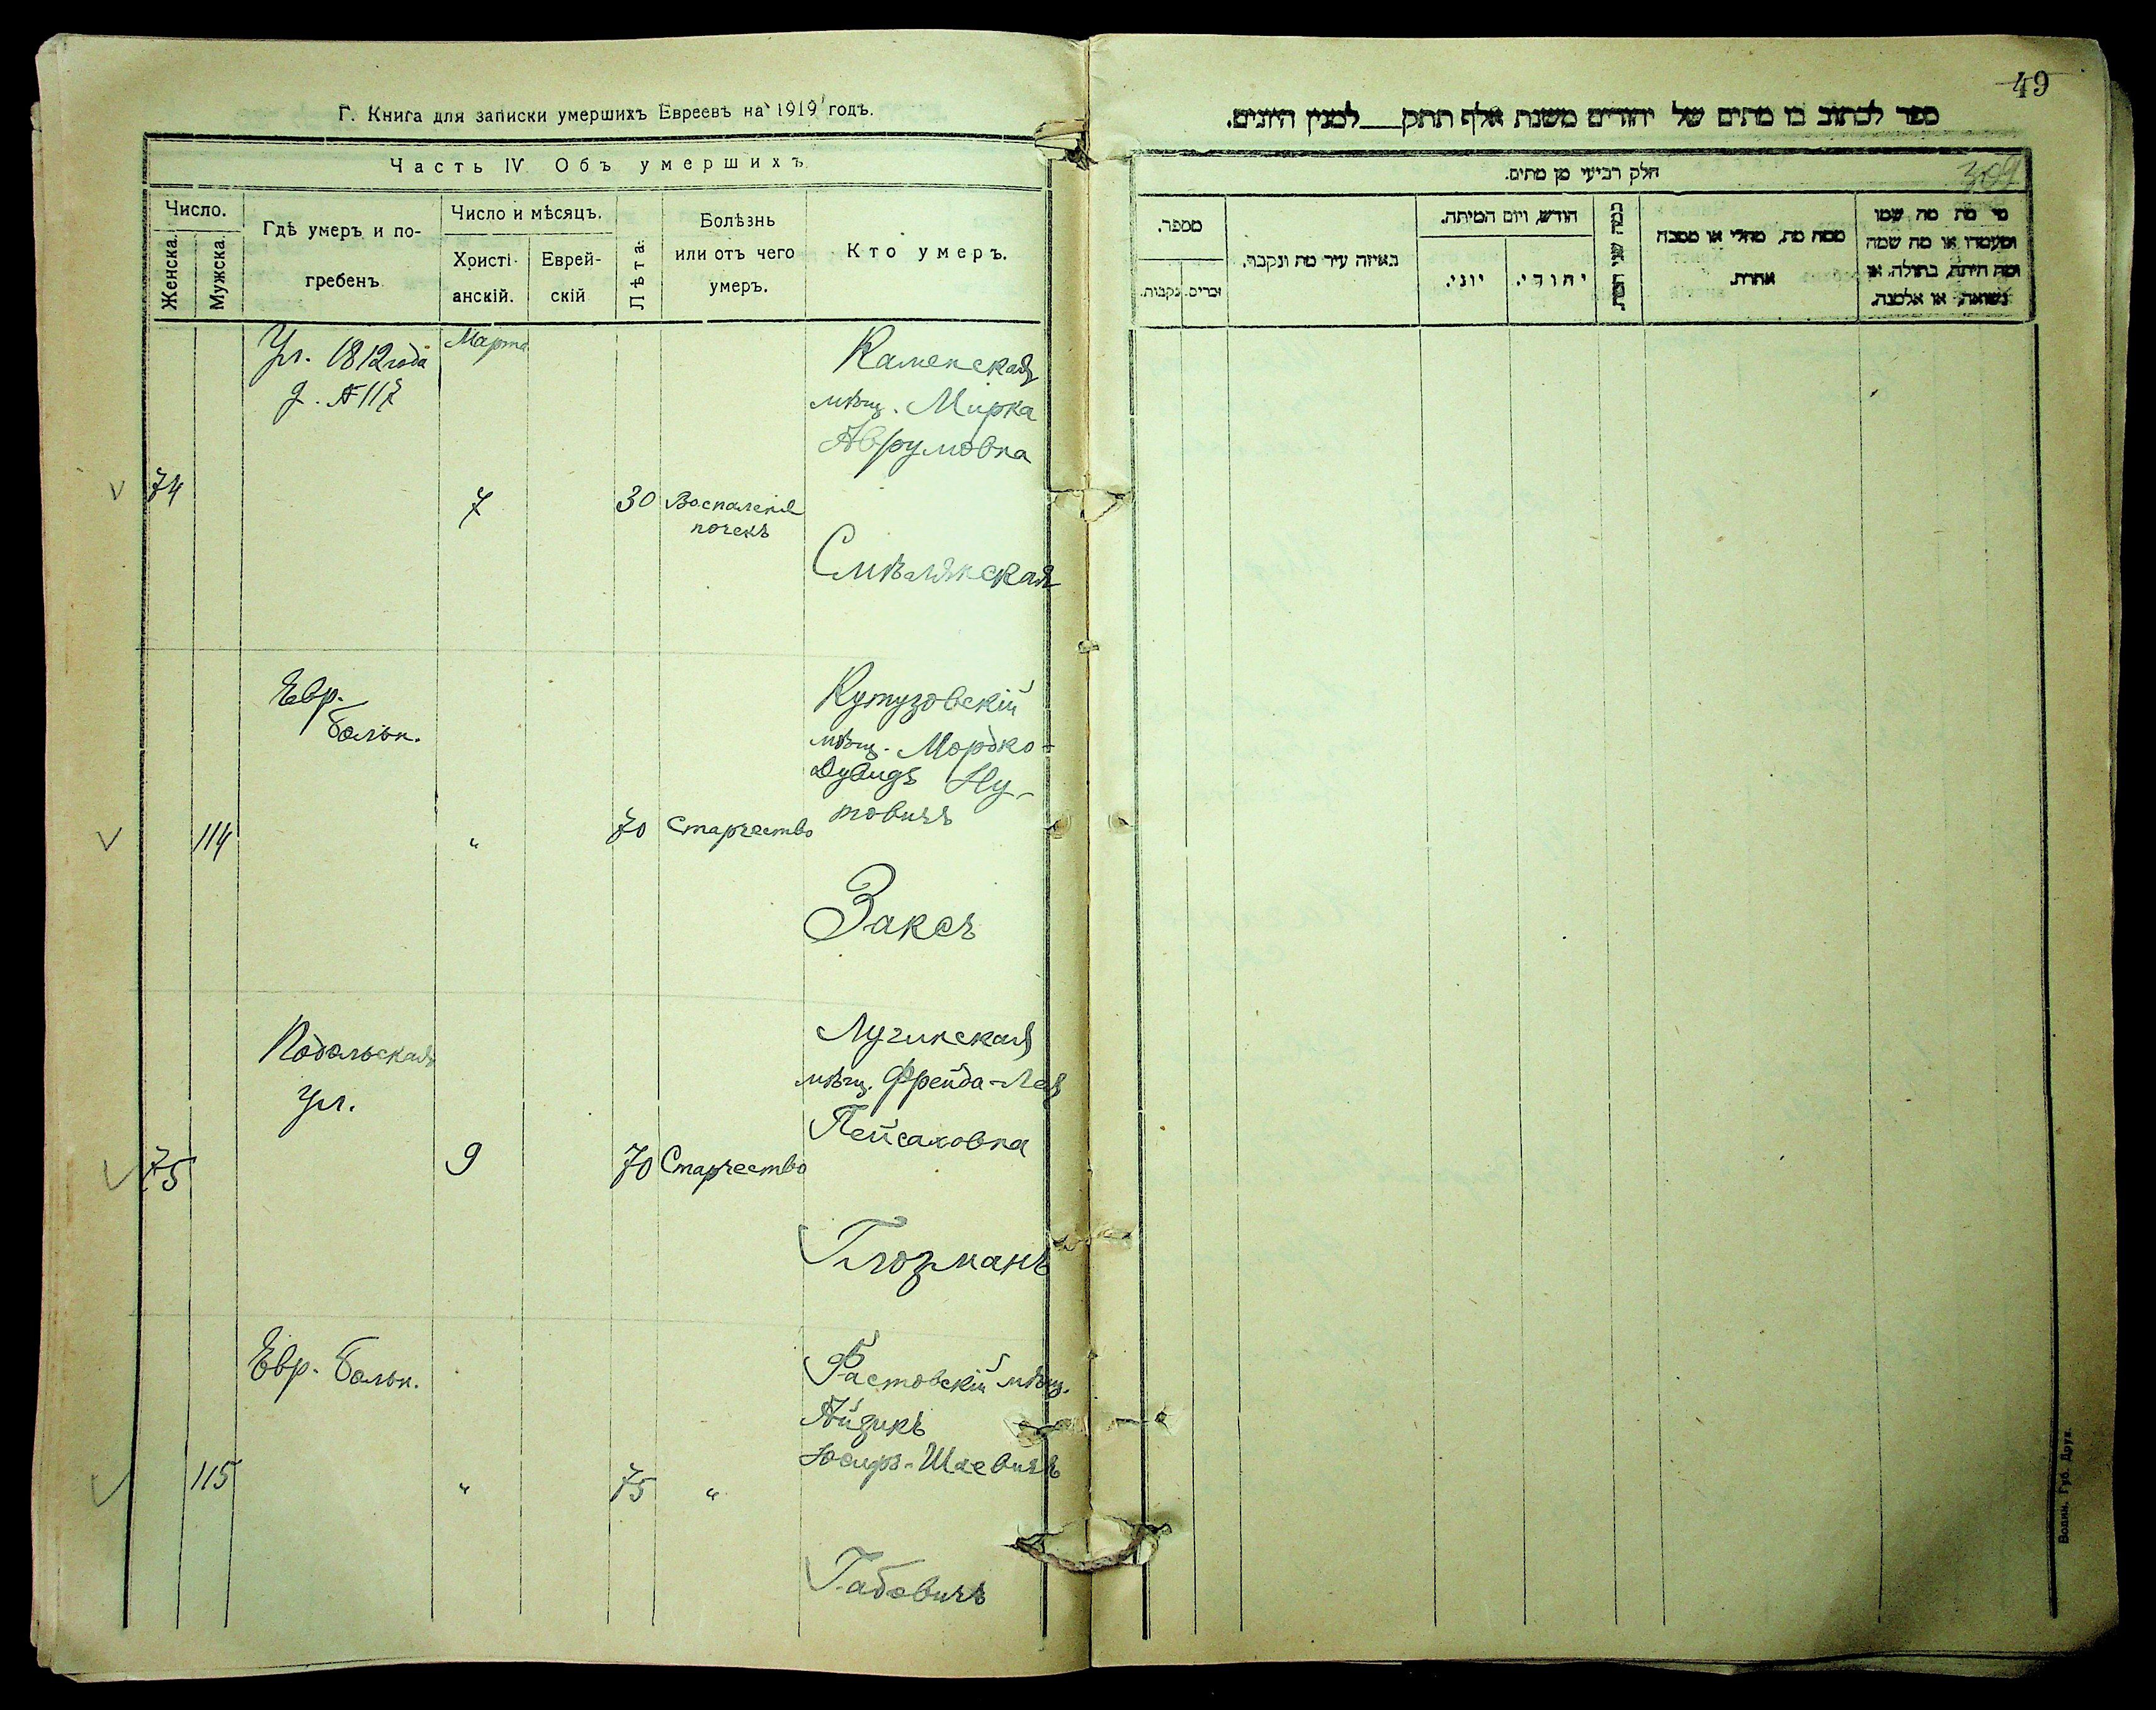 Г. Книга для записки умершихъ Евреевъ на 1919 годъ.
Часть IV Объ умершихъ.
Число.
Женска.
Мужска.
Гдѣ умеръ и по-
гребенъ
Число и мѣсяцъ.
Христі-
анскій.
Еврей-
скій
Лѣта.
Болѣзнь
или отъ чего
умеръ.
Кто умеръ.
Ул. 1812 года
д. № 117
Марта
Каменская
мѣщ. Мирка
Аврумовна
74
7
30
Воспаленіе
почекъ
Смѣлянская
Евр.
больн.
Кутузовскій
мѣщ. Мордко-
Дувидъ Ну-
товичъ
114
"
70
Старчество
Заксъ
Подольская
ул.
Лугинская
мѣщ. Фрейда-Лея
Пейсаховна
75
9
70
Старчество
Глозманъ
Евр. больн.
Фастовскій мѣщ.
Айзикъ
Іосифъ-Шаевичъ
115
"
75
"
Габовичъ
49
ספר לכתוב בו מתים של יהודים משנת אלף תתק___ למנין היונים.
309
חלק רביעי מן מתים.
מספר.
זכרים.
נקבות.
באיזה עיר מת ונקבר.
חודש, ויום המיתה.
יוני.
יהודי.
כמה שני המת.
ממה מת, מחלי או מסבה
אחרת.
מי מת מה שמו
ומעמדו או מה שמה
ומה היתה, בתולה, או
נשואה, או אלמנה.
Волин. Губ. Друк.